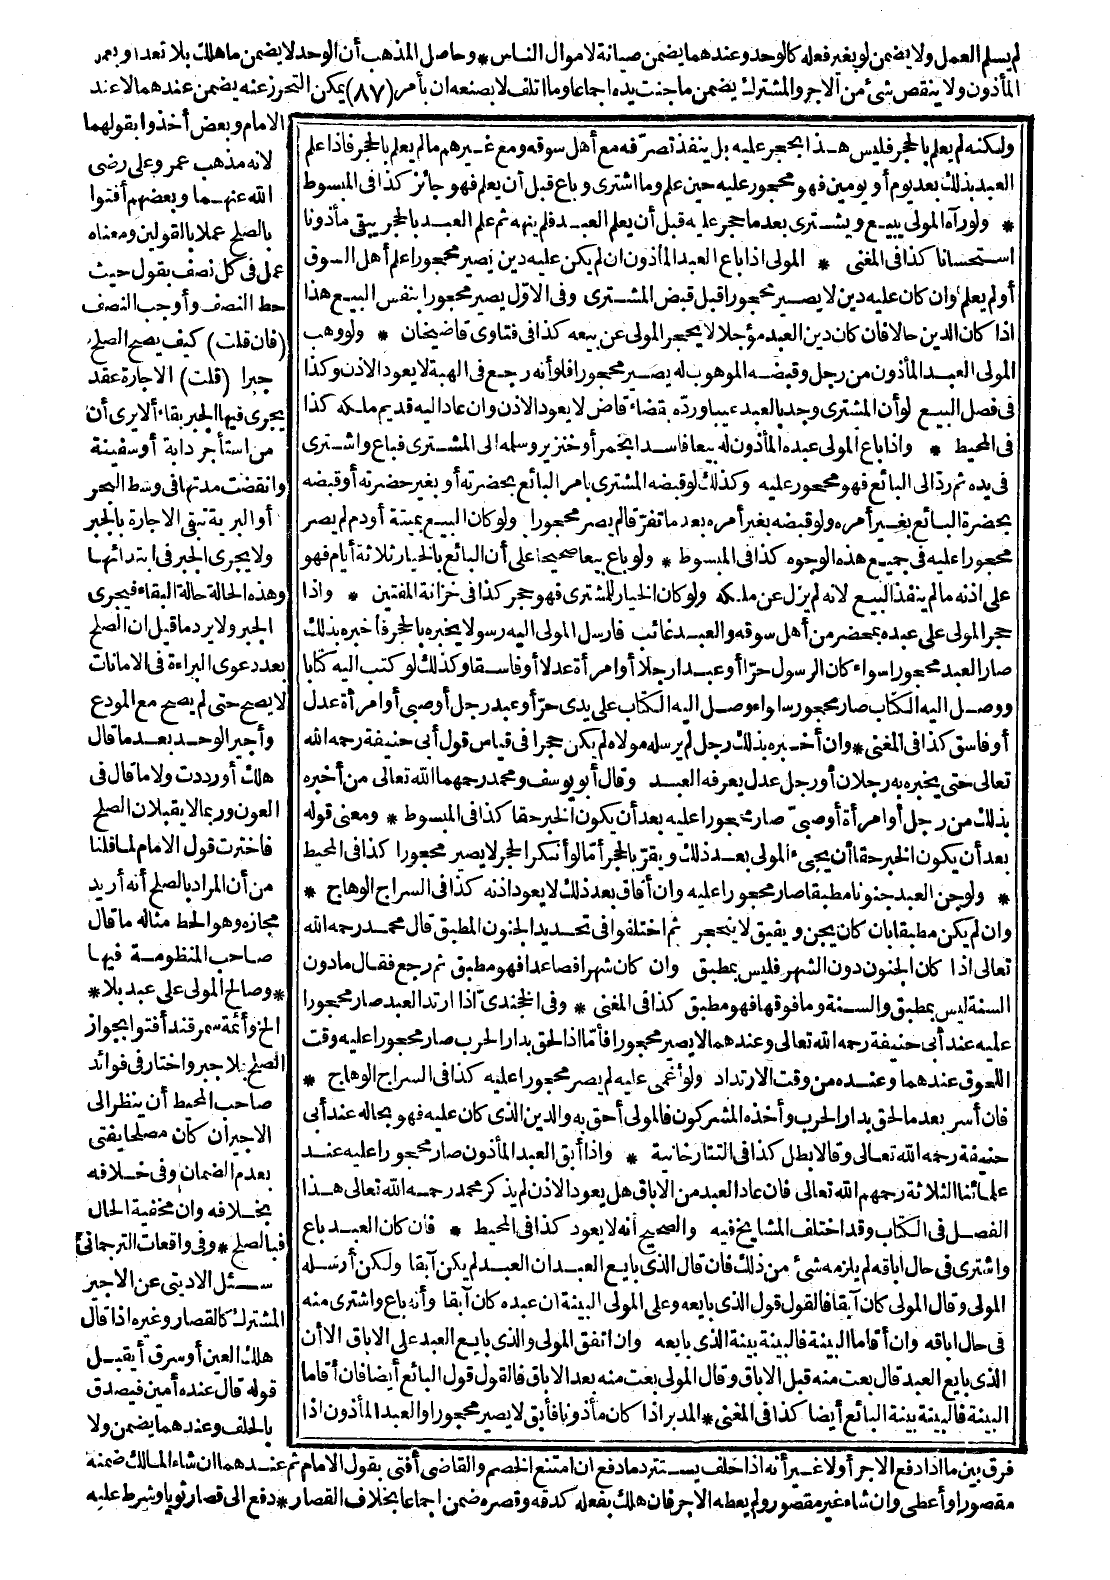 لم يسلم العمل ولا يضمن لو بغير فعله كالوحد وعندهما يضمن صيانة لاموال الناس * وحاصل المذهب أن الوحد لا يضمن ما هلك بلا تعد او بعمل
المأذون ولا ينقص شئ من الآجر والمشترك يضمن ما جنت يده اجماعا وما اتلف لا بصنعه ان بأمر (٨٧) يمكن التحرز عنه يضمن عندهما لا عند
ولكنه لم يعلم بالحجر فليس هـذا بحجر عليه بل ينفذ تصرّفه مع أهل سوقه ومع غيرهم ما لم يعلم بالحجر فاذا علم
العبد بذلك بعد يوم أو يومين فهو محجور عليه حين علم وما اشترى وباع قبل أن يعلم فهو جائز كذا فى المبسوط
* ولو رآه المولى يبيع ويشترى بعد ما حجر عليه قبل أن يعلم العبد فلم ينهه ثم علم العبد بالحجر يبقى مأذونا
استحسانا كذا فى المغنى * المولى اذا باع العبد المأذون ان لم يكن عليه دين يصير محجورا علم أهل السوق
أو لم يعلم وان كان عليه دين لا يصير محجورا قبل قبض المشترى وفى الاوّل يصير محجورا بنفس البيع هذا
اذا كان الدين حالا فان كان دين العبد مؤجلا لا يحجر المولى عن بيعه كذا فى فتاوى قاضيخان * ولو وهب
المولى العبد المأذون من رجل وقبضه الموهوب له يصير محجورا فلو أنه رجع فى الهبة لا يعود الاذن وكذا
فى فصل البيع لو أن المشترى وجد بالعبد عيبا وردّه بقضاء قاض لا يعود الاذن وان عاد اليه قديم ملكه كذا
فى المحيط * واذا باع المولى عبده المأذون له بيعا فاسدا بخمر أو خنزير وسلمه الى المشترى فباع واشترى
فى يده ثم ردّ الى البائع فهو محجور عليه وكذلك لو قبضه المشترى بامر البائع بحضرته أو بغير حضرته أو قبضه
بحضرة البائع بغير أمره ولو قبضه بغير أمره بعد ما تفرّقا لم يصر محجورا ولو كان البيع بميتة أو دم لم يصر
محجورا عليه فى جميع هذه الوجوه كذا فى المبسوط * ولو باع بيعا صحيحا على أن البائع بالخيار ثلاثة أيام فهو
على اذنه ما لم ينفذ البيع لانه لم يزل عن ملكه ولو كان الخيار للمشترى فهو حجر كذا فى خزانة المفتين * واذا
حجر المولى على عبده بمحضر من أهل سوقه والعبد غائب فارسل المولى اليه رسولا يخبره بالحجر فأخبره بذلك
صار العبد محجورا سواء كان الرسول حرّا أو عبدا رجلا أو امرأة عدلا أو فاسقا وكذلك لو كتب اليه كتابا
ووصل اليه الكتاب صار محجورا سواء وصل اليه الكتاب على يدى حرّ أو عبد رجل أو صبى أو امرأة عدل
أو فاسق كذا فى المغنى * وان أخبره بذلك رجل لم يرسله مولاه لم يكن حجرا فى قياس قول أبى حنيفة رحمه الله
تعالى حتى يخبره به رجلان أو رجل عدل يعرفه العبد وقال أبو يوسف ومحمد رحمهما الله تعالى من أخبره
بذلك من رجل أو امرأة أو صبىّ صار محجورا عليه بعد أن يكون الخبر حقا كذا فى المبسوط * ومعنى قوله
بعد أن يكون الخبر حقا أن يجىء المولى بعد ذلك ويقرّ بالحجر أمّا لو أنكر الحجر لا يصير محجورا كذا فى المحيط
* ولو جن العبد جنونا مطبقا صار محجورا عليه وان أفاق بعد ذلك لا يعود اذنه كذا فى السراج الوهاج *
وان لم يكن مطبقا بان كان يجن ويفيق لا ينحجر ثم اختلفوا فى تحديد الجنون المطبق قال محمد رحمه الله
تعالى اذا كان الجنون دون الشهر فليس بمطبق وان كان شهرا فصاعدا فهو مطبق ثم رجع فقال ما دون
السنة ليس بمطبق والسنة وما فوقها فهو مطبق كذا فى المغنى * وفى الخجندى اذا ارتد العبد صار محجورا
عليه عند أبى حنيفة رحمه الله تعالى وعندهما لا يصير محجورا فأمّا اذا لحق بدار الحرب صار محجورا عليه وقت
اللحوق عندهما وعنده من وقت الارتداد ولو أغمى عليه لم يصر محجورا عليه كذا فى السراج الوهاج *
فان أسر بعد ما لحق بدار الحرب وأخذه المشركون فالمولى أحق به والدين الذى كان عليه فهو بحاله عند أبى
حنيفة رحمه الله تعالى وقالا بطل كذا فى التتارخانية * واذا أبق العبد المأذون صار محجورا عليه عند
علمائنا الثلاثة رحمهم الله تعالى فان عاد العبد من الاباق هل يعود الاذن لم يذكر محمد رحمه الله تعالى هـذا
الفصل فى الكتاب وقد اختلف المشايخ فيه والصحيح أنه لا يعود كذا فى المحيط * فان كان العبد باع
واشترى فى حال اباقه لم يلزمه شئ من ذلك فان قال الذى بايع العبد ان العبد لم يكن آبقا ولكن أرسله
المولى وقال المولى كان آبقا فالقول قول الذى بايعه وعلى المولى البينة ان عبده كان آبقا وأنه باع واشترى منه
فى حال اباقه وان أقاما البينة فالبينة بينة الذى بايعه وان اتفق المولى والذى بايع العبد على الاباق الا أن
الذى بايع العبد قال بعت منه قبل الاباق وقال المولى بعت منه بعد الاباق فالقول قول البائع أيضا فان أقاما
البينة فالبينة بينة البائع أيضا كذا فى المغنى * المدبر اذا كان مأذونا فأبق لا يصير محجورا والعبد المأذون اذا
الامام وبعض أخذوا بقولهما
لانه مذهب عمر وعلى رضى
الله عنهما وبعضهم أفتوا
بالصلح عملا بالقولين ومعناه
عمل فى كل نصف بقول حيث
حط النصف وأوجب النصف
(فان قلت) كيف يصح الصلح
جبرا (قلت) الاجارة عقد
يجرى فيها الجبر بقاء ألا يرى أن
من استأجر دابة أو سفينة
وانقضت مدتها فى وسط البحر
أو البرية تبقى الاجارة بالجبر
ولا يجرى الجبر فى ابتدائها
وهذه الحالة حالة البقاء فيجرى
الجبر ولا يرد ما قبل ان الصلح
بعد دعوى البراءة فى الامانات
لا يصح حتى لم يصح مع المودع
وأجير الوحد بعد ما قال
هلك أو رددت ولا ما قال فى
العون وربما لا يقبلان الصلح
فاخترت قول الامام لما قلنا
من أن المراد بالصلح أنه أريد
مجازه وهو الحط مثاله ما قال
صاحب المنظومة فيها
* وصالح المولى على عبد بلا *
الخ وأئمة سمرقند أفتوا بجواز
الصلح بلا جبر واختار فى فوائد
صاحب المحيط أن ينظر الى
الاجير ان كان مصلحا يفتى
بعدم الضمان وفى خلافه
بخلافه وان مخفية الحال
فبالصلح * وفى واقعات الترجمانى
سئل الاديتى عن الاجير
المشترك كالقصار وغيره اذا قال
هلك العين أو سرق أيقبل
قوله قال عنده أمين فيصدق
بالحلف وعندهما يضمن ولا
فرق بين ما اذا دفع الاجر أو لا غير أنه اذا حلف يسترد ما دفع ان امتنع الخصم والقاضى أفتى بقول الامام ثم عندهما ان شاء المالك ضمنه
مقصورا وأعطى وان شاء غير مقصور ولم يعطه الاجر فان هلك بفعله كدقه وقصره ضمن اجماعا بخلاف القصار * دفع الى قصار ثوبا وشرط عليه